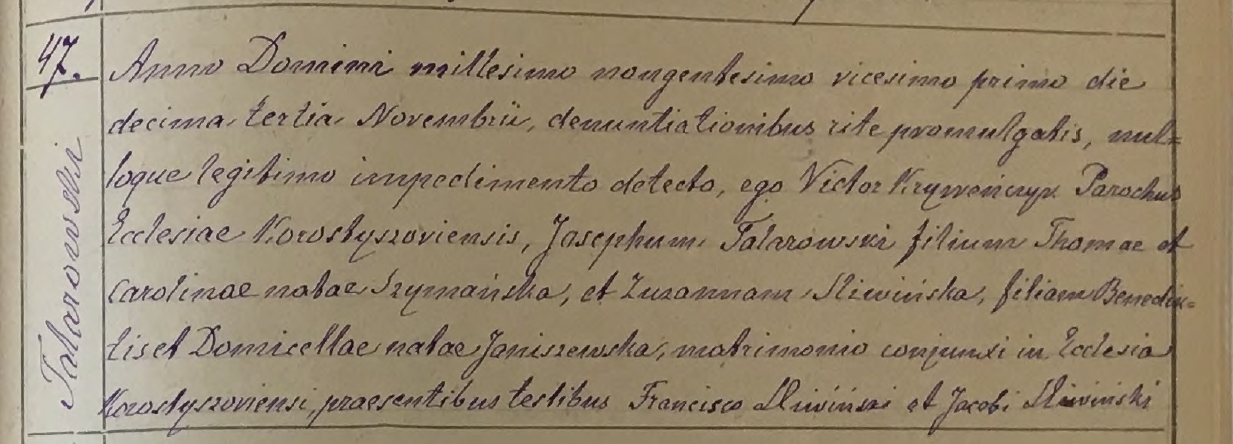 47.
Tatarowski
Anno Domini millesimo nongentesimo vicesimo primo die
decima tertia Novembrii, denuntiationibus rite promulgatis, nul=
loque legitimo impedimento detecto, ego Victor Parochus
Ecclesiae Korostyszoviensis, Josephum Tatarowski filium Thomae et
Carolinae natae Szymańska, et Zuzannam Sliwińska, filiam Benedic=
tis et Domicellae natae Janiszewska, matrimonio conjunxi in Ecclesia
Korostyszoviensi, praesentibus testibus Francisco Sliwinski et Jacobi Sliwinski